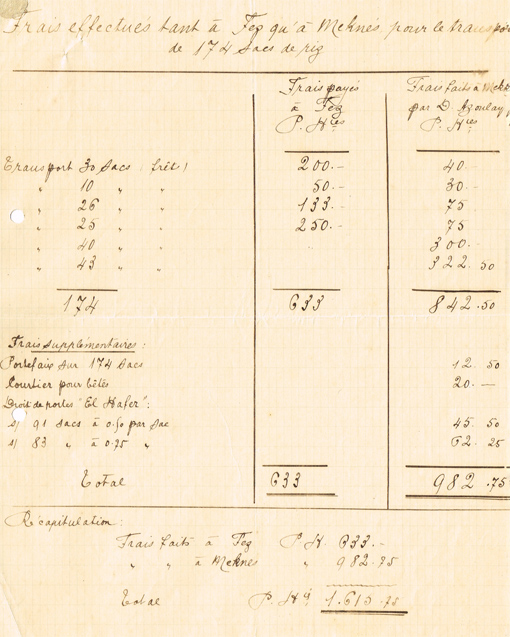 Frais effectués tant à Fez qu'à Meknès pour le transport
de 174 sacs de riz
Frais payés
à Fez
P. Hies
Frais faits à Mekn
par D. Azoulay
P. Hies
Transport 30 Sacs (frêt)
200.-
40.-
" 10 " "
50.-
30.-
" 26 " "
133.-
75
" 25 " "
250.-
75
" 40 " "
300.-
" 43 " "
322.50
174
633
842.50
Frais supplémentaires :
Portefaix sur 174 Sacs
12.50
Courtier pour bêtes
20.—
Droit de portes "El Hafer" :
s/ 91 sacs à 0.50 par sac
45.50
s/ 83 " à 0.75 "
62.25
Total
633
982.75
Récapitulation :
Frais faits à Fez P.H. 633.-
" " à Meknes " 982.75
Total P. Hies 1.615.75